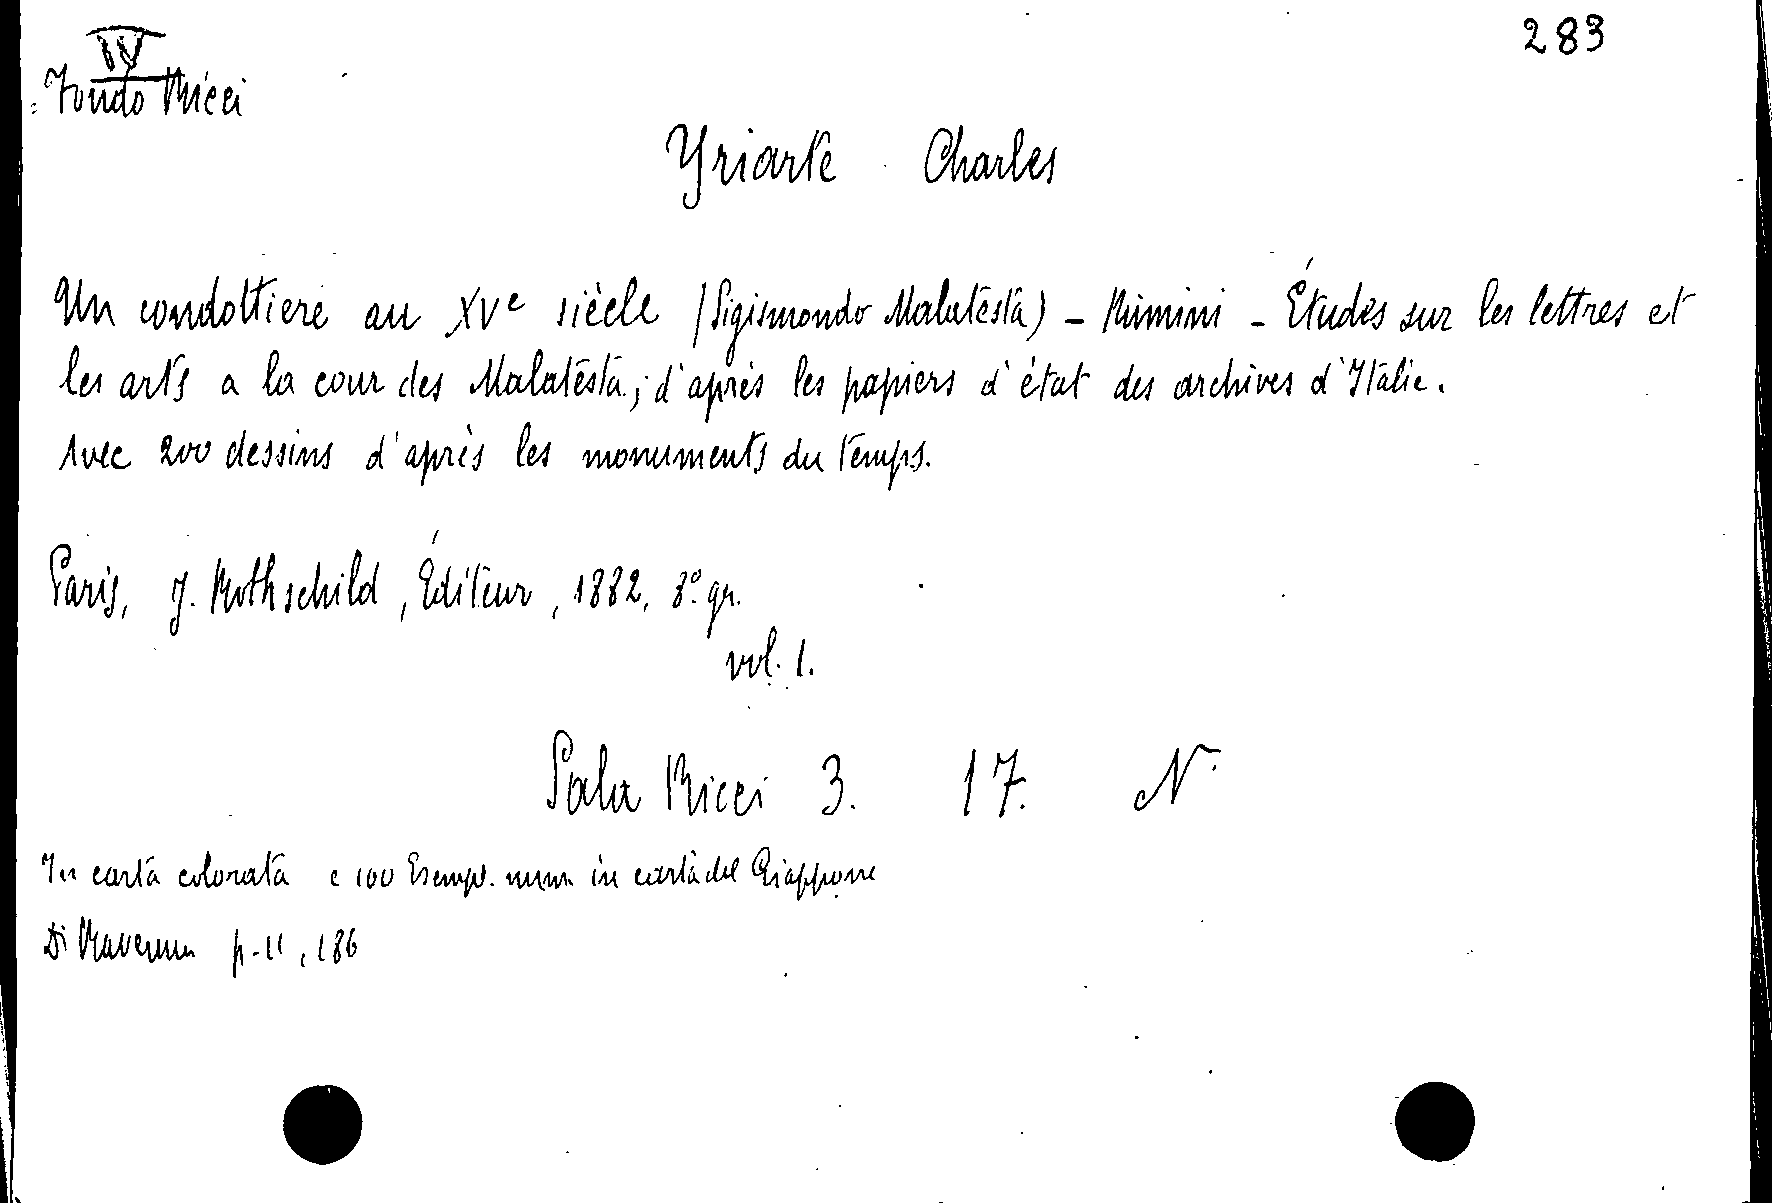 IV
283
Fondo Ricci
Yriarte Charles
Un condottiere au XVe siècle (Sigismondo Malatesta) - Rimini - Études sur les lettres et
les arts a la cour des Malatesta, d'après les papiers d'état des archives d'Italie.
Avec 200 dessins d'après les monuments du temps.
Paris, J. Rothschild, Éditeur, 1882, 8º gr.
vol. 1.
Sala Ricci 3. 17. N.
In carta colorata e 100 Esempl. num in carta del Giappone
Di Ravenna p. 11, 186